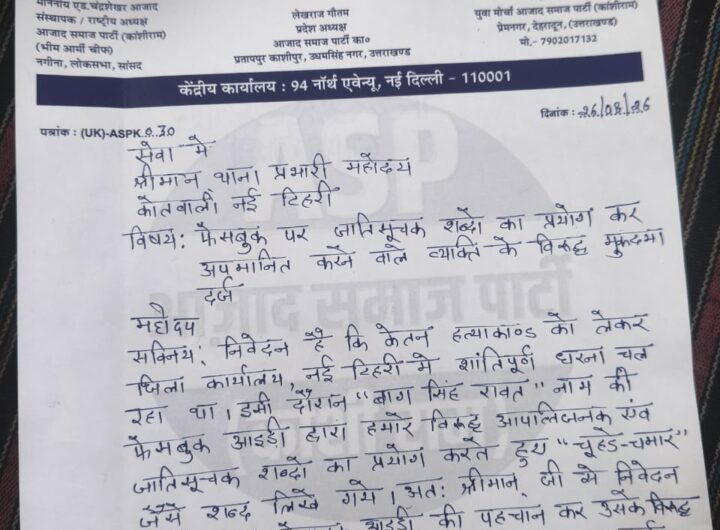 माननीय एड.चंद्रशेखर आजाद
संस्थापक / राष्ट्रीय अध्यक्ष
आजाद समाज पार्टी (कांशीराम)
(भीम आर्मी चीफ)
नगीना, लोकसभा, सांसद
लेखराज गौतम
प्रदेश अध्यक्ष
आजाद समाज पार्टी का०
प्रतापपुर काशीपुर, उधमसिंह नगर, उत्तराखण्ड
युवा मोर्चा आजाद समाज पार्टी (कांशीराम)
प्रेमनगर, देहरादून, (उत्तराखण्ड)
मो.- 7902017132
केंद्रीय कार्यालय : 94 नॉर्थ एवेन्यू, नई दिल्ली - 110001
पत्रांक : (UK)-ASPK 030
दिनांक : 26/08/26
सेवा में
श्रीमान थाना प्रभारी महोदय
कोतवाली नई टिहरी
विषय: फेसबुक पर जातिसूचक शब्दों का प्रयोग कर
अपमानित करने वाले व्यक्ति के विरुद्ध मुकदमा
दर्ज
महोदय
सविनय, निवेदन है कि केतन हत्याकाण्ड को लेकर
जिला कार्यालय, नई टिहरी में शांतिपूर्ण धरना चल
रहा था। इसी दौरान "बाग सिंह रावत" नाम की
फेसबुक आइडी द्वारा हमारे विरुद्ध आपत्तिजनक एंव
जातिसूचक शब्दों का प्रयोग करते हुए "चूहडे-चमार"
जैसे शब्द लिखे गये। अत: श्रीमान् जी से निवेदन
आइडी की पहचान कर उसके विरुद्ध
ASP
आज़ाद समाज पार्टी